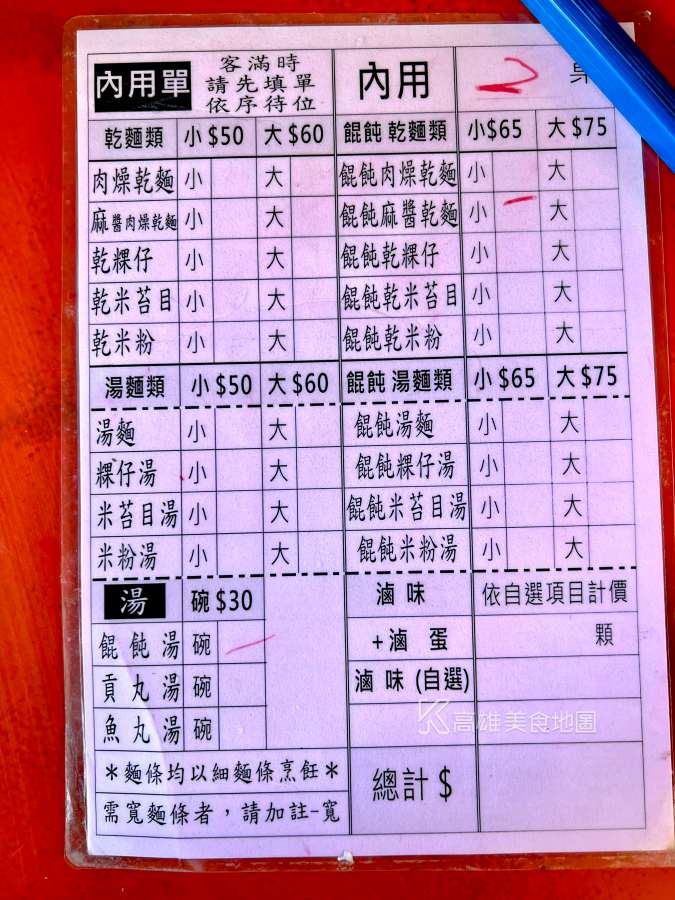 內用單 客滿時 請先填單 依序待位 內用 2
乾麵類 小 $50 大 $60 餛飩 乾麵類 小$65 大 $75
肉燥乾麵 小 大 餛飩肉燥乾麵 小 大
麻醬肉燥乾麵 小 大 餛飩麻醬乾麵 小 大
乾粿仔 小 大 餛飩乾粿仔 小 大
乾米苔目 小 大 餛飩乾米苔目 小 大
乾米粉 小 大 餛飩乾米粉 小 大
湯麵類 小 $50 大 $60 餛飩 湯麵類 小 $65 大 $75
湯麵 小 大 餛飩湯麵 小 大
粿仔湯 小 大 餛飩粿仔湯 小 大
米苔目湯 小 大 餛飩米苔目湯 小 大
米粉湯 小 大 餛飩米粉湯 小 大
湯 碗 $30 滷味 依自選項目計價
餛飩湯 碗 +滷蛋 顆
貢丸湯 碗 滷味 (自選)
魚丸湯 碗
高雄美食地圖
*麵條均以細麵條烹飪* 總計 $
需寬麵條者，請加註-寬